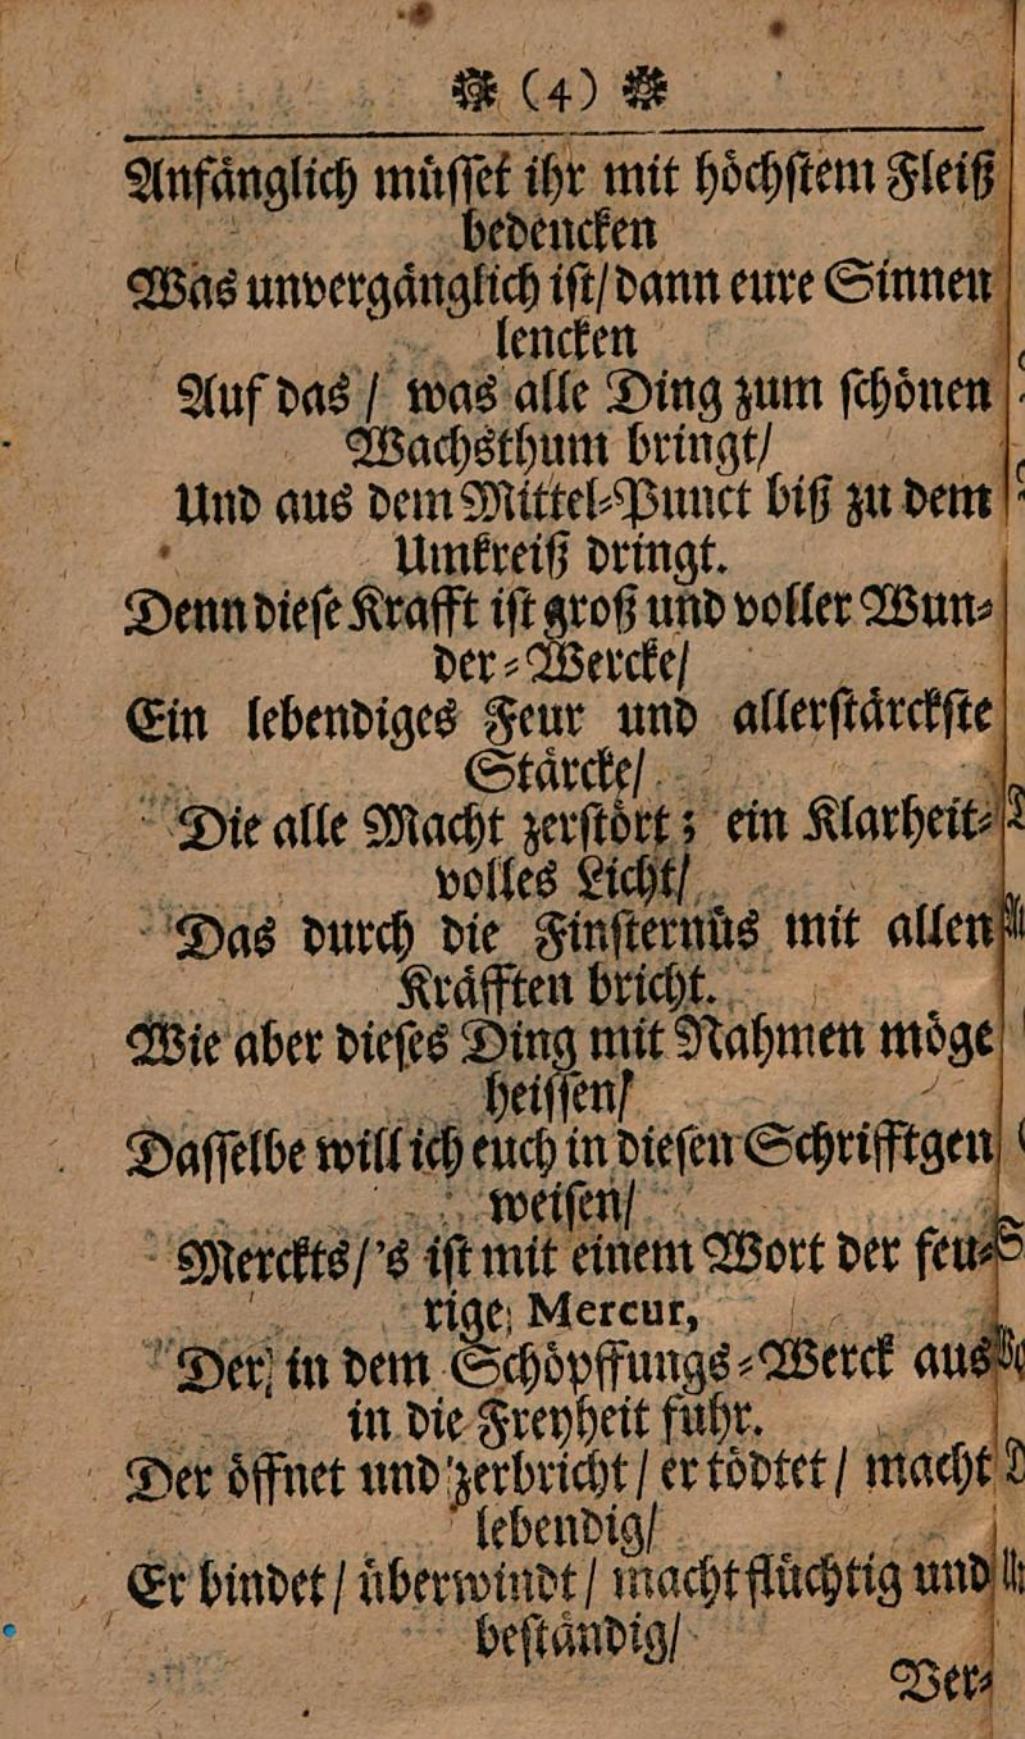 (4)
Anfänglich müsset ihr mit höchstem Fleiß
bedencken
Was unvergänglich ist/ dann eure Sinnen
lencken
Auf das / was alle Ding zum schönen
Wachsthum bringt/
Und aus dem Mittel-Punct biß zu dem
Umkreiß dringt.
Denn diese Krafft ist groß und voller Wun-
der-Wercke/
Ein lebendiges Feur und allerstärckste
Stärcke/
Die alle Macht zerstört; ein Klarheit-
volles Licht/
Das durch die Finsternüs mit allen
Kräfften bricht.
Wie aber dieses Ding mit Nahmen möge
heissen/
Dasselbe will ich euch in diesen Schrifftgen
weisen/
Merckts/'s ist mit einem Wort der feu-
rige Mercur,
Der in dem Schöpffungs-Werck aus
in die Freyheit fuhr.
Der öffnet und zerbricht / er tödtet / macht
lebendig/
Er bindet / überwindt / macht flüchtig und
beständig/
Ver-